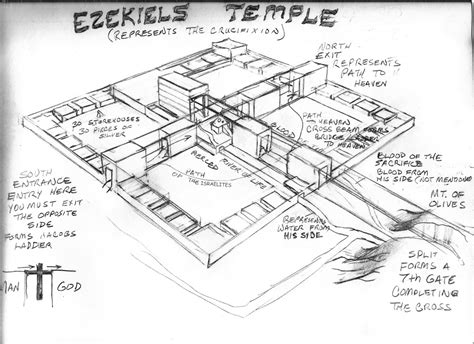 EZEKIELS TEMPLE
(REPRESENTS THE CRUCIFIXION)
NORTH
EXIT
REPRESENTS
PATH TO
HEAVEN
30 STOREHOUSES
30 PIECES OF
SILVER
PATH
HEAVEN
CROSS BEAM FORMS
BRIDGE
TO HEAVEN
BLOOD
PIERCED
RIVER OF LIFE
PATH
OF THE ISRAELITES
BLOOD OF THE
SACRIFICE
BLOOD FROM
HIS SIDE (NOT MENTIONED)
MT. OF
OLIVES
SOUTH
ENTRANCE
ENTRY HERE
YOU MUST EXIT
THE OPPOSITE
SIDE
FORMS JACOBS
LADDER
MAN
GOD
REPRESENTS
WATER FROM
HIS SIDE
SPLIT
FORMS A
7th GATE
COMPLETING
THE CROSS